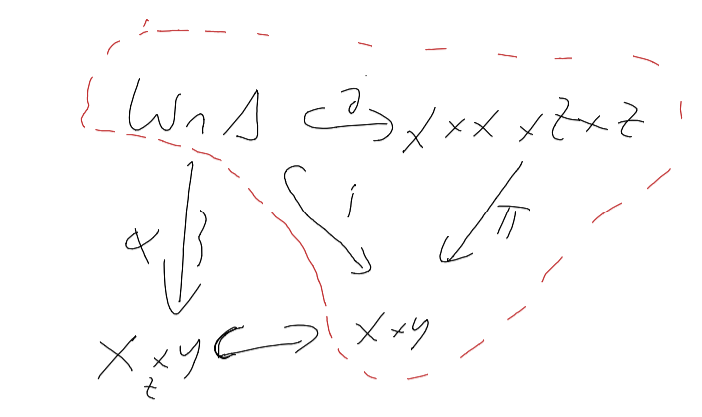 W ∩ Δ ∂ X × X × Z × Z
α ⌇ i π
X ×_Z Y X × Y